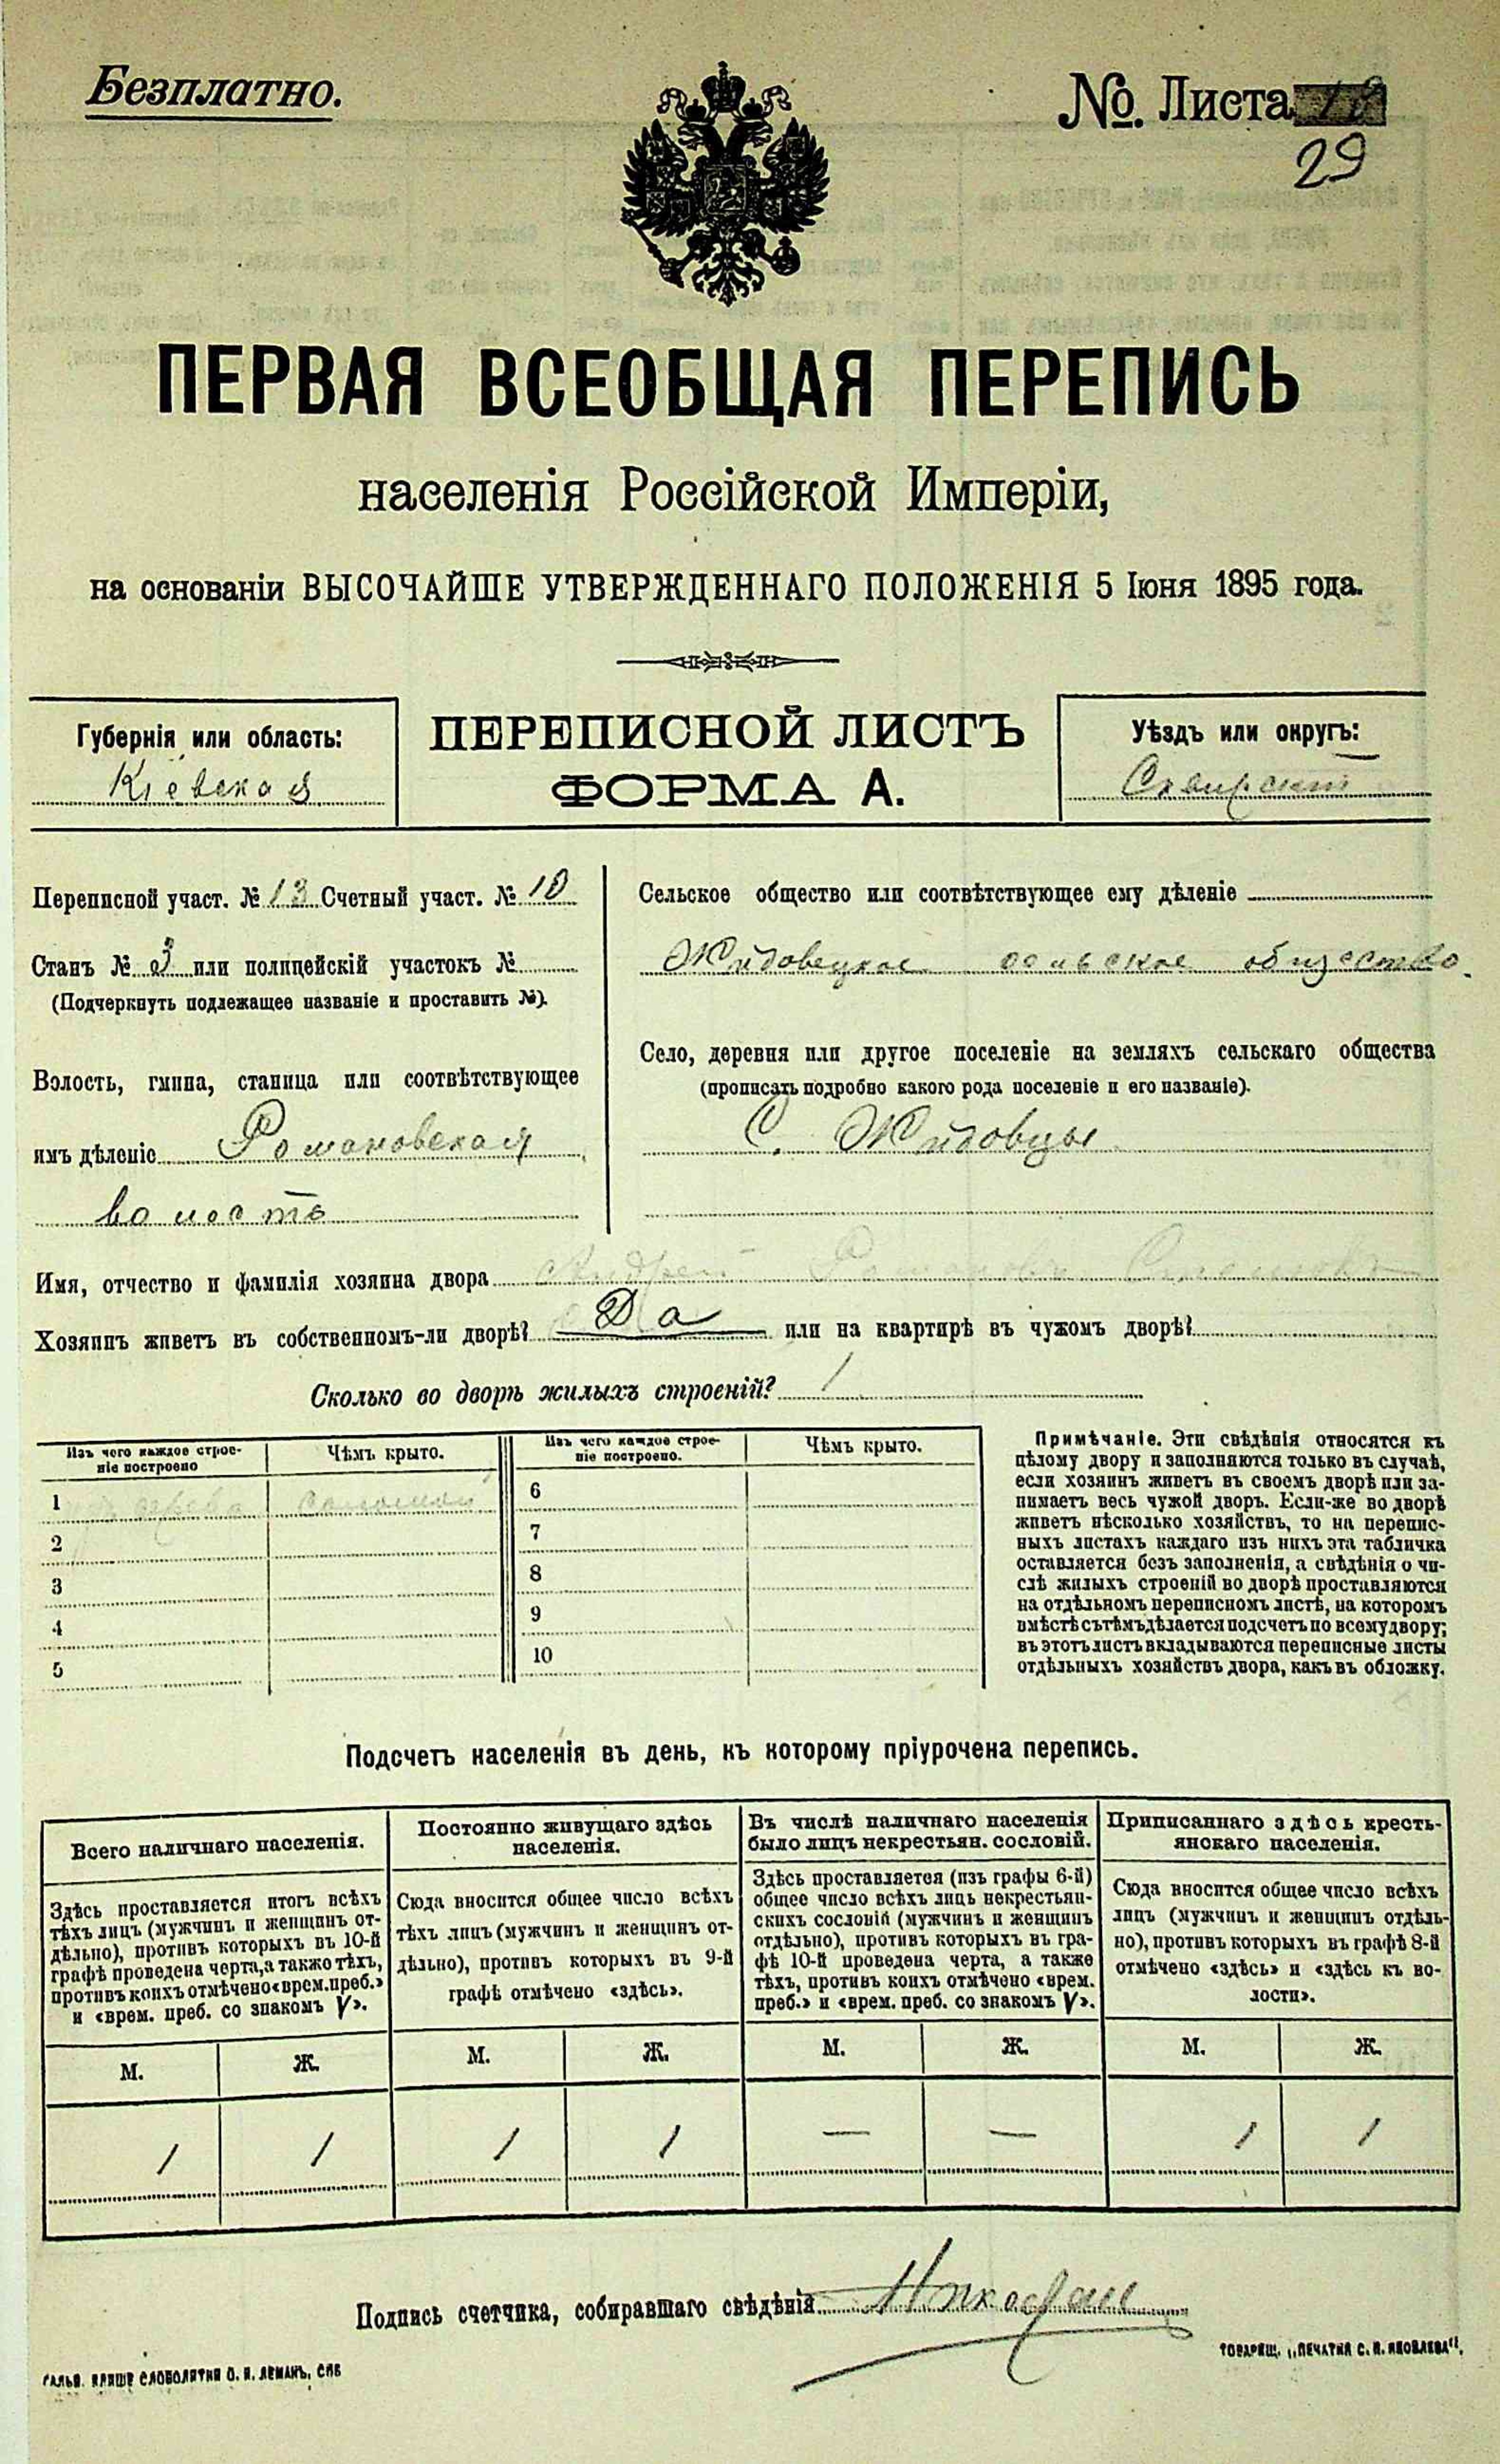 Безплатно.
№. Листа
29
ПЕРВАЯ ВСЕОБЩАЯ ПЕРЕПИСЬ
населенія Россійской Имперіи,
на основаніи ВЫСОЧАЙШЕ УТВЕРЖДЕННАГО ПОЛОЖЕНІЯ 5 Іюня 1895 года.
Губернія или область:
Кіевская
ПЕРЕПИСНОЙ ЛИСТЪ
ФОРМА А.
Уѣздъ или округъ:
Сквирскій
Переписной участ. № 13 Счетный участ. № 10
Станъ № 3 или полицейскій участокъ №
(Подчеркнуть подлежащее названіе и проставить №).
Волость, гмина, станица или соотвѣтствующее
имъ дѣленіе Романовская
волость
Сельское общество или соотвѣтствующее ему дѣленіе
Жидовецкое сельское общество.
Село, деревня или другое поселеніе на земляхъ сельскаго общества
(прописать подробно какого рода поселеніе и его названіе).
С. Жидовцы
Имя, отчество и фамилія хозяина двора Андрей Романовъ
Хозяинъ живетъ въ собственномъ-ли дворѣ? Да или на квартирѣ въ чужомъ дворѣ?
Сколько во дворѣ жилыхъ строеній? 1
Изъ чего каждое строе-
ніе построено
Чѣмъ крыто.
Изъ чего каждое строе-
ніе построено.
Чѣмъ крыто.
1 дерева соломой
2
3
4
5
6
7
8
9
10
Примѣчаніе. Эти свѣдѣнія относятся къ
цѣлому двору и заполняются только въ случаѣ,
если хозяинъ живетъ въ своемъ дворѣ или за-
нимаетъ весь чужой дворъ. Если-же во дворѣ
живетъ нѣсколько хозяйствъ, то на перепис-
ныхъ листахъ каждаго изъ нихъ эта табличка
оставляется безъ заполненія, а свѣдѣнія о чи-
слѣ жилыхъ строеній во дворѣ проставляются
на отдѣльномъ переписномъ листѣ, на которомъ
вмѣстѣ съ тѣмъ дѣлается подсчетъ по всему двору;
въ этотъ листъ вкладываются переписные листы
отдѣльныхъ хозяйствъ двора, какъ въ обложку.
Подсчетъ населенія въ день, къ которому пріурочена перепись.
Всего наличнаго населенія.
Здѣсь проставляется итогъ всѣхъ
тѣхъ лицъ (мужчинъ и женщинъ от-
дѣльно), противъ которыхъ въ 10-й
графѣ проведена черта, а также тѣхъ,
противъ коихъ отмѣчено «врем. преб.»
и «врем. преб. со знакомъ V».
Постоянно живущаго здѣсь
населенія.
Сюда вносится общее число всѣхъ
тѣхъ лицъ (мужчинъ и женщинъ от-
дѣльно), противъ которыхъ въ 9-й
графѣ отмѣчено «здѣсь».
Въ числѣ наличнаго населенія
было лицъ некрестьян. сословій.
Здѣсь проставляется (изъ графы 6-й)
общее число всѣхъ лицъ некрестьян-
скихъ сословій (мужчинъ и женщинъ
отдѣльно), противъ которыхъ въ гра-
фѣ 10-й проведена черта, а также
тѣхъ, противъ коихъ отмѣчено «врем.
преб.» и «врем. преб. со знакомъ V».
Приписаннаго здѣсь кресть-
янскаго населенія.
Сюда вносится общее число всѣхъ
лицъ (мужчинъ и женщинъ отдѣль-
но), противъ которыхъ въ графѣ 8-й
отмѣчено «здѣсь» и «здѣсь къ во-
лости».
М. Ж. М. Ж. М. Ж. М. Ж.
1 1 1 1 — — 1 1
Подпись счетчика, собиравшаго свѣдѣнія
ГАЛЬВ. КЛИШЕ СЛОВОЛИТНИ О. И. ЛЕМАНЪ, СПБ
ТОВАРИЩ. „ПЕЧАТНЯ С. П. ЯКОВЛЕВА".